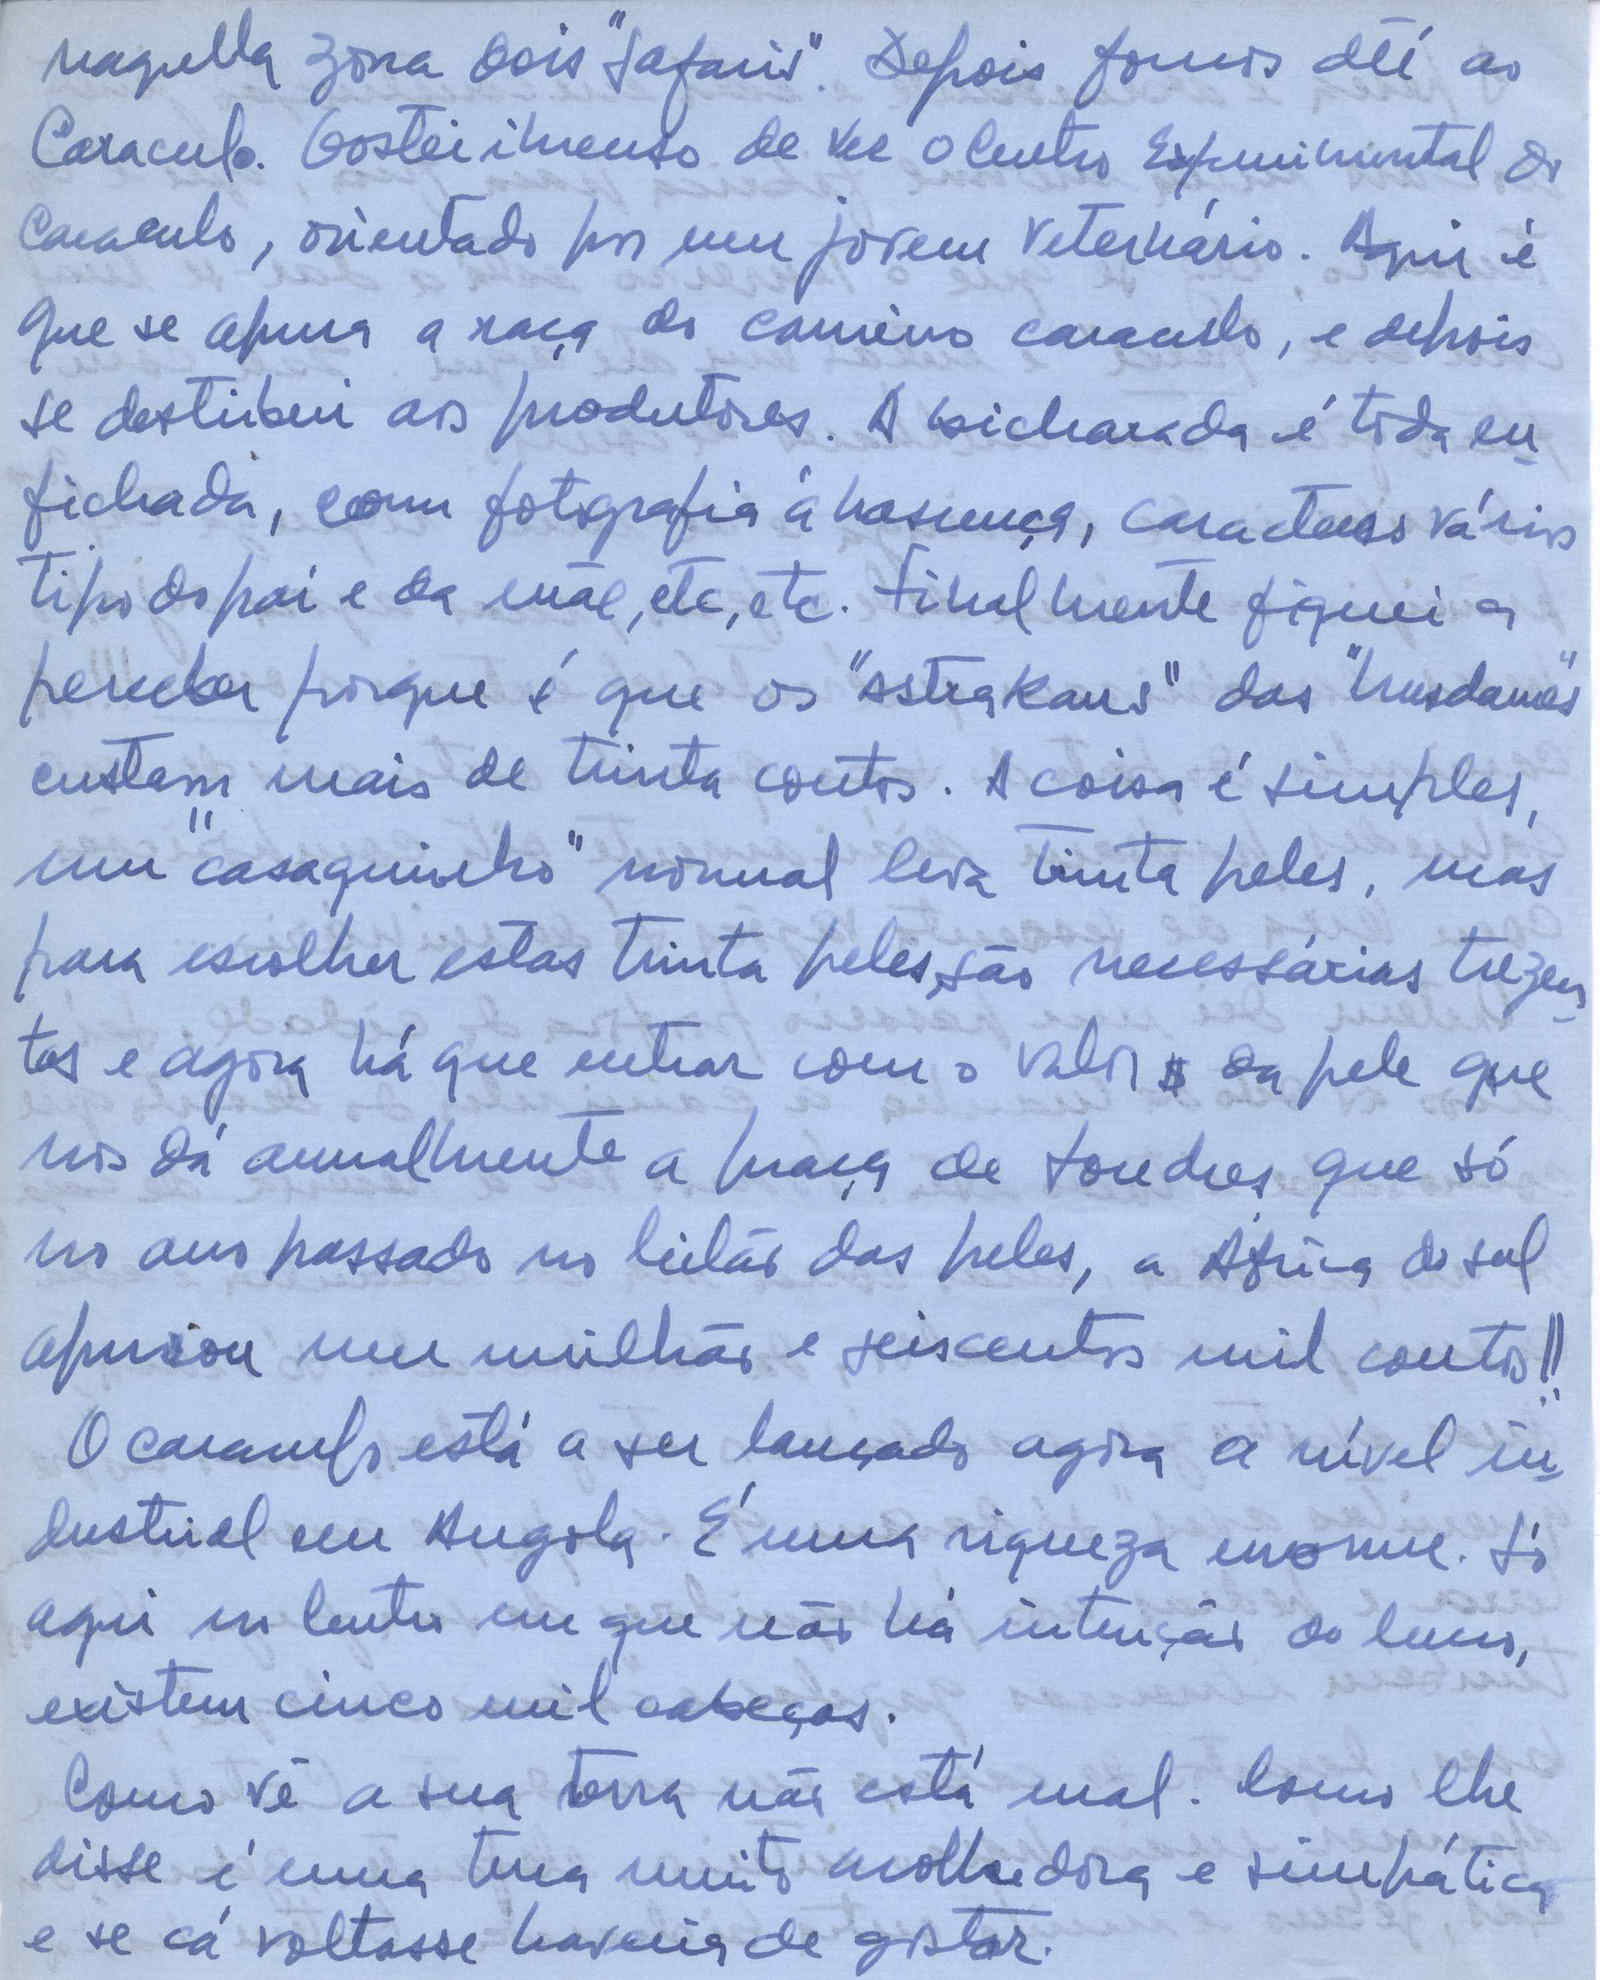 naquella zona dois "Safaris". Depois fomos até ao
Caraculo. Gostei imenso de ver o Centro Experimental do
Caraculo, orientado por um jovem veterinário. Aqui é
que se apura a raça do carneiro caraculo, e depois
se destribui aos produtores. A bicharada é toda en
fichada, com fotografia á nascença, caracteres vários
tipo do pai e da mãe, etc, etc. Finalmente fiquei a
perceber porque é que os "Astrakans" das "
custam mais de trinta contos. A coisa é simples,
um "casaquinho" normal leva trinta peles, mas
para escolher estas trinta peles, são necessárias trezen
tas e agora há que entrar com o valor $ da pele que
nos dá anualmente a praça de Londres que só
no ano passado no leilão das peles, a África do Sul
apurou um milhão e seiscentos mil contos!!
O caraculo está a ser lançado agora a nível in
dustrial em Angola. É uma riqueza enorme. Só
aqui no Centro em que não há intenção do lucro,
existem cinco mil cabeças.
Como vê a sua terra não está mal. Como lhe
disse é uma terra muito acolhedora e simpática
e se cá voltasse haveria de gostar.